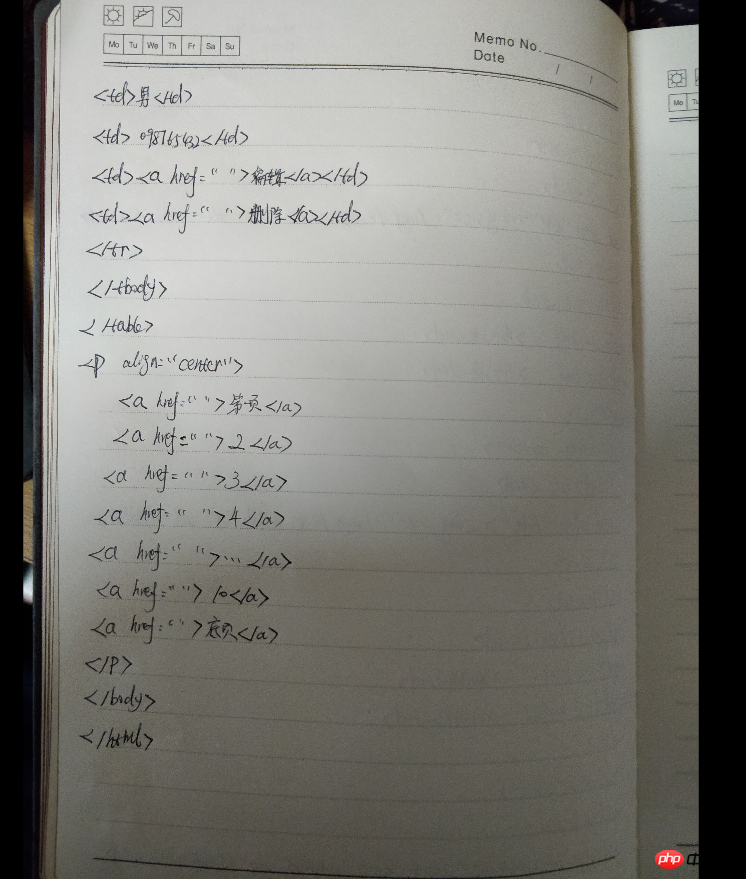 Mo Tu We Th Fr Sa Su
Memo No.
Date / /
Mo Tu
<td>男</td>
<td>098765432</td>
<td><a href=“ ”>编辑</a></td>
<td><a href=“ ”>删除</a></td>
</tr>
</tbody>
</table>
<p align=“center”>
<a href=“ ”>第页</a>
<a href=“ ”>2</a>
<a href=“ ”>3</a>
<a href=“ ”>4</a>
<a href=“ ”>...</a>
<a href=“ ”>10</a>
<a href=“ ”>底页</a>
</p>
</body>
</html>
php 中